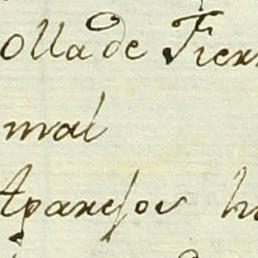 olla de Fier
mal
Aparejos h